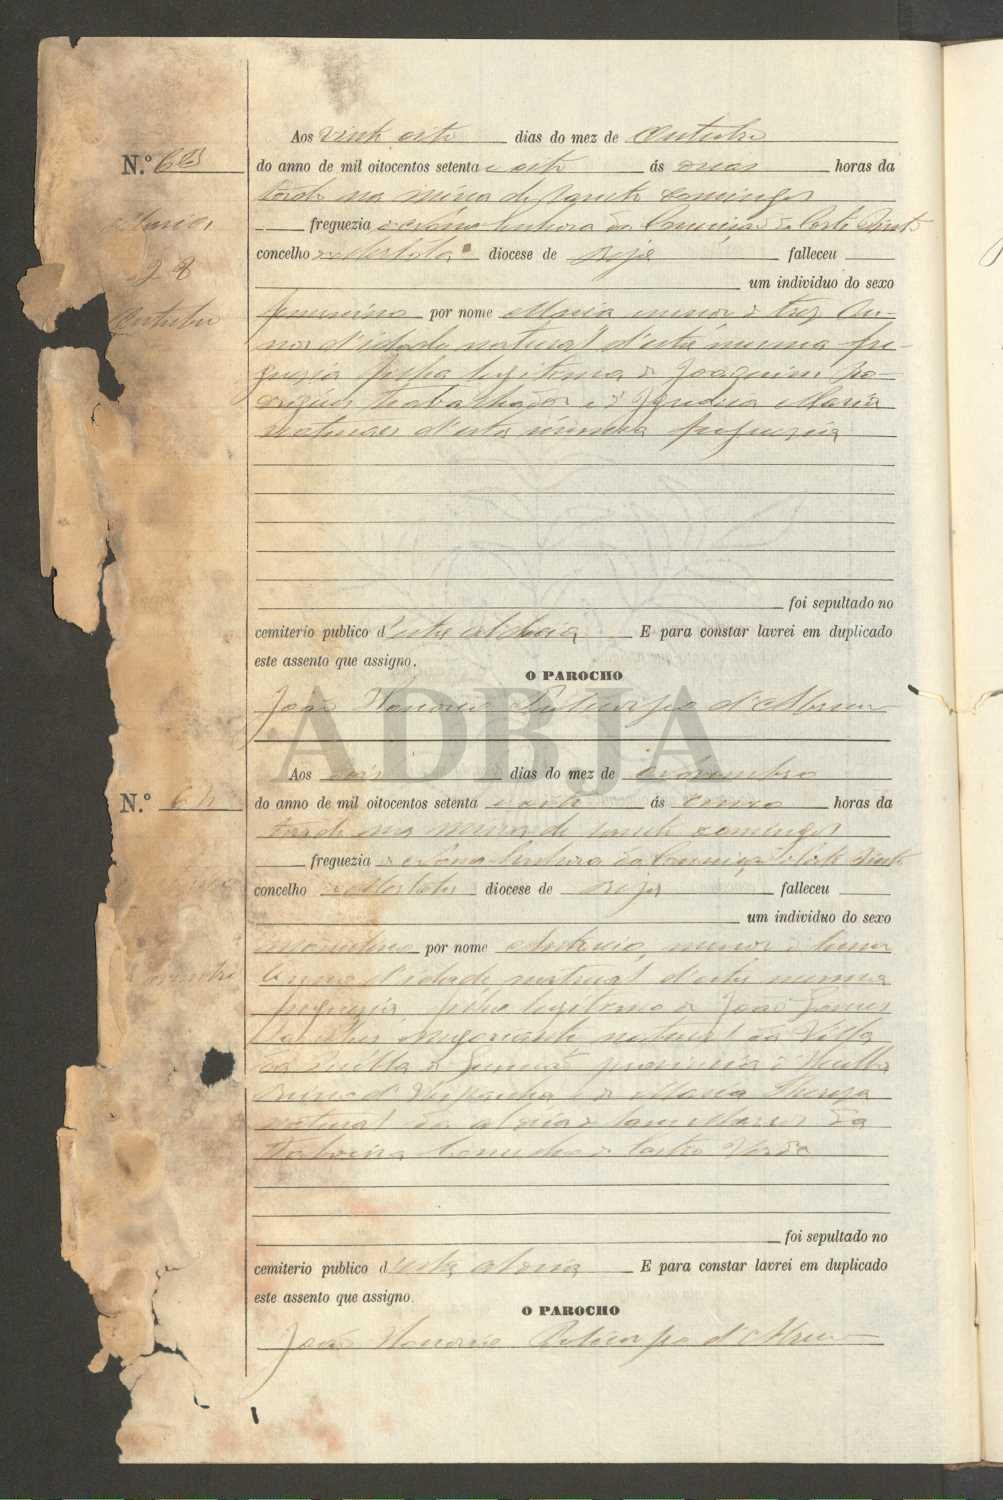 Aos vinte oito dias do mez de Outubro
N.º 63 do anno de mil oitocentos setenta e oito ás duas horas da
tarde na mina de Sancto Domingos
Maria freguezia de Nossa Senhora da Conceição da Corte do Pinto
28 concelho de Mertola diocese de Beja falleceu
um individuo do sexo
Outubro femenino por nome Maria menor de tres An-
nos d'idade natural d'esta mesma fre-
guezia filha legitima de Joaquim Ro-
drigues trabalhador e de Ignacia Maria
naturaes d'esta mesma freguezia
foi sepultado no
cemiterio publico d'esta aldeia E para constar lavrei em duplicado
este assento que assigno.
O PAROCHO
João Honorio Policarpo d'Abreu
ADBJA
Aos dias do mez de Novembro
N.º 64 do anno de mil oitocentos setenta e oito ás cinco horas da
tarde na mina de Sancto Domingos
freguezia de Nossa Senhora da Conceição da Corte do Pinto
concelho de Mertola diocese de Beja falleceu
um individuo do sexo
masculino por nome Antonio, menor de
d'idade natural d'esta mesma
freguezia filho legitimo de João Gomes
negociante natural da Villa
da de provincia de
Reino d'Hispanha e de Maria Thereza
natural da aldeia de da
concelho de Castro Verde
foi sepultado no
cemiterio publico d'esta aldeia E para constar lavrei em duplicado
este assento que assigno.
O PAROCHO
João Honorio Policarpo d'Abreu